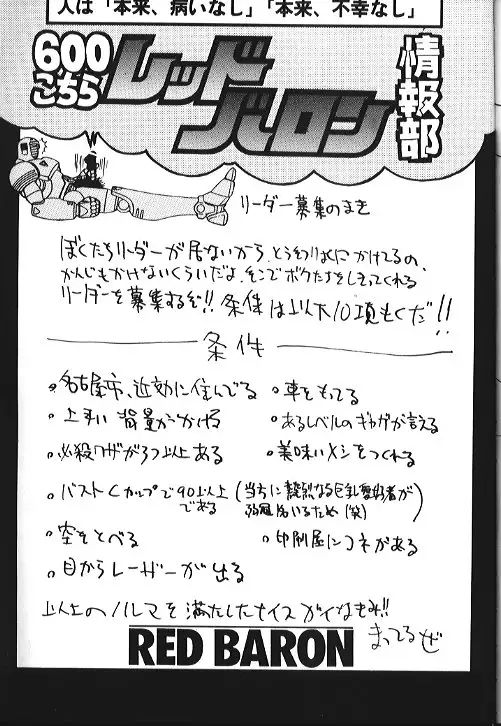 人は「本来、病いなし」「本来、不幸なし」
600
こちら
レッド
バロン
情報部
リーダー募集のまき
ぼくたちリーダーが居ないから、とうそつりょくにかけてるの、
かんじもかけないくらいだよ、そこでボクたちをしきってくれる
リーダーを募集するぞ!!条件は以下10項もくだ!!
条件
・名古屋市、近効に住んでる
・車をもってる
・上手い背景がかける
・あるレベルのギャグが言える
・必殺ワザが3つ以上ある
・美味いメシをつくれる
・バストCカップで90以上
である
(当方に熱烈なる巨乳愛好者が
居るため(笑)
・空をとべる
・印刷屋にコネがある
・目からレーザーが出る
以上のノルマを満たしたナイスガイなきみ!!
まってるぜ
RED BARON